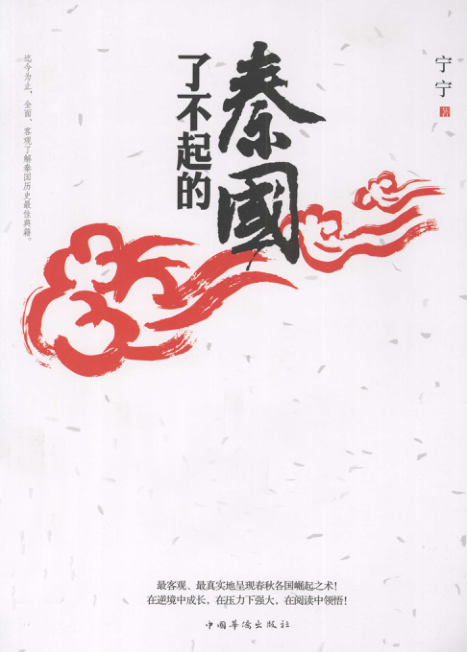 宁宁 著
了不起的
秦國
迄今为止,全面、客观了解秦国历史最佳典籍。
最客观、最真实地呈现春秋各国崛起之术!
在逆境中成长,在压力下强大,在阅读中领悟!
中國華僑出版社